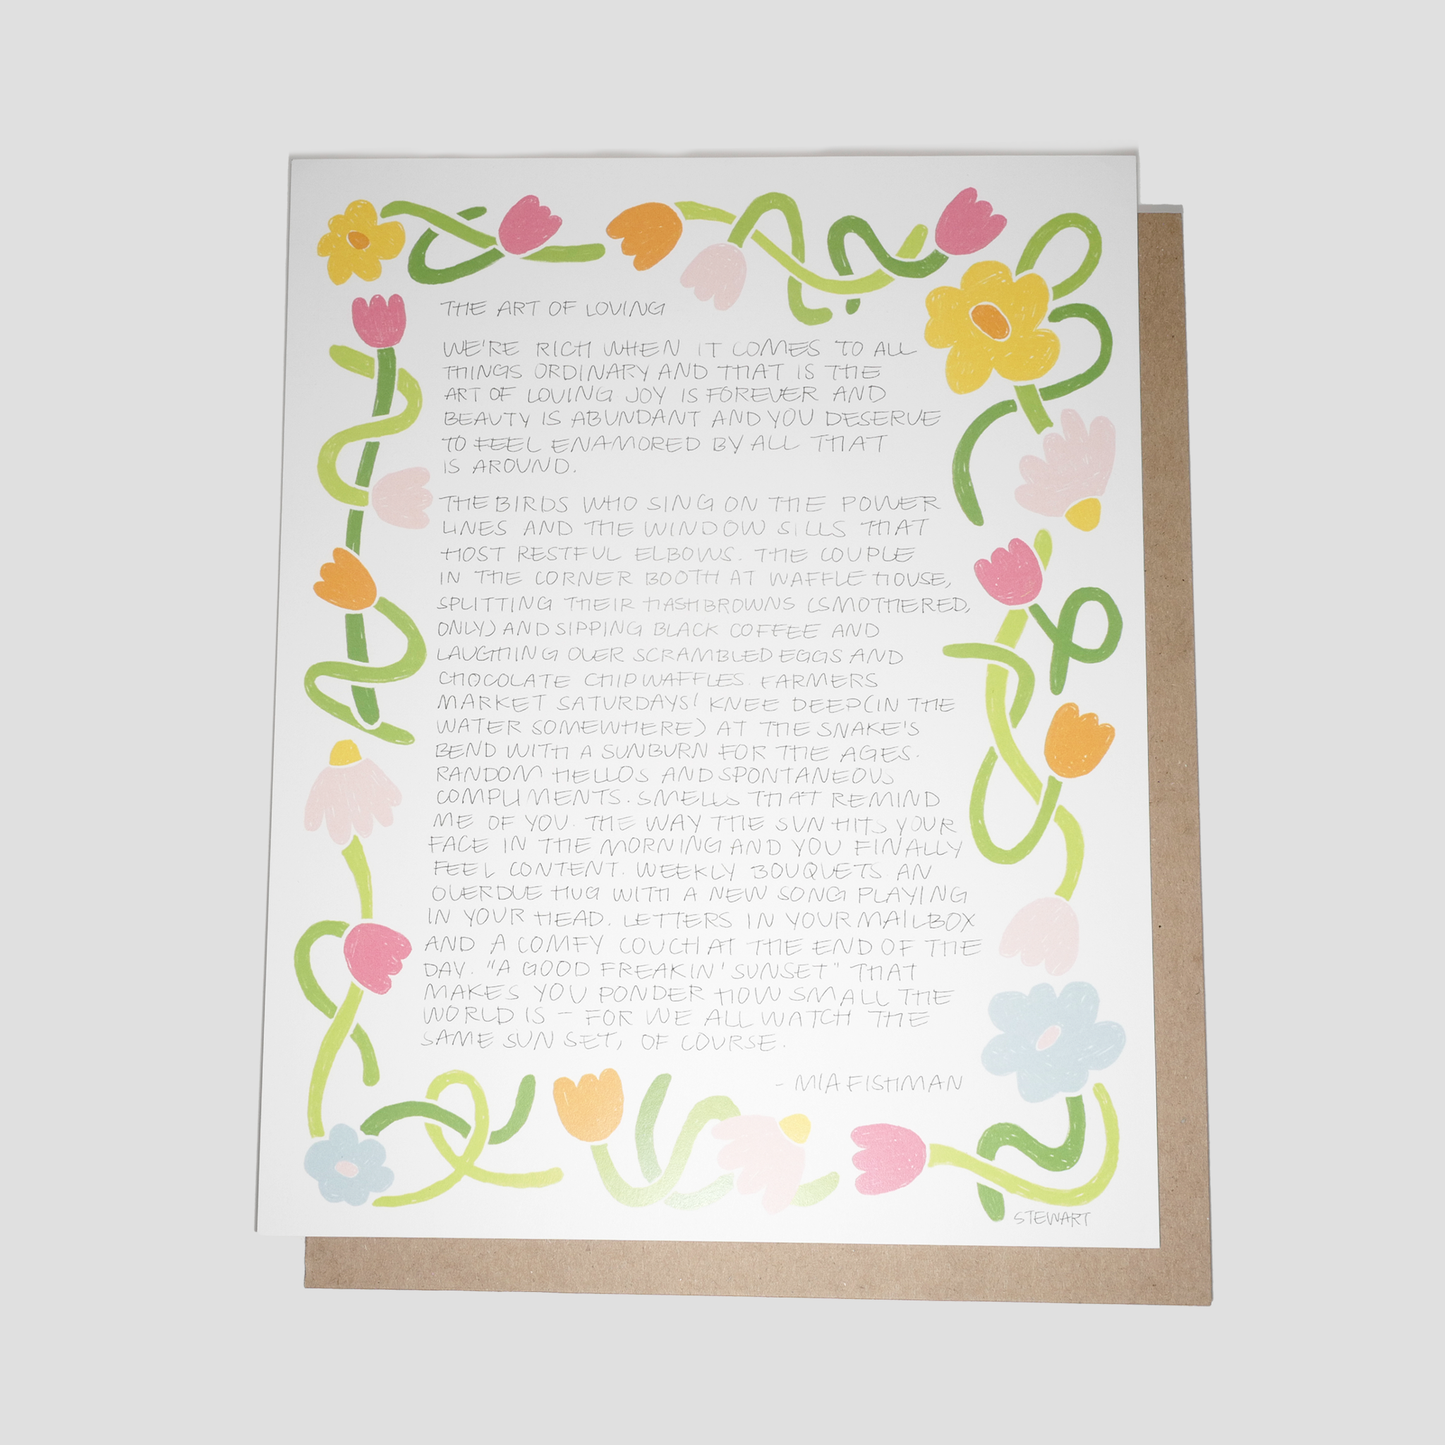 THE ART OF LOVING
WE'RE RICH WHEN IT COMES TO ALL
THINGS ORDINARY AND THAT IS THE
ART OF LOVING JOY IS FOREVER AND
BEAUTY IS ABUNDANT AND YOU DESERVE
TO FEEL ENAMORED BY ALL THAT
IS AROUND.
THE BIRDS WHO SING ON THE POWER
LINES AND THE WINDOW SILLS THAT
HOST RESTFUL ELBOWS. THE COUPLE
IN THE CORNER BOOTH AT WAFFLE HOUSE,
SPLITTING THEIR HASHBROWNS (SMOTHERED,
ONLY) AND SIPPING BLACK COFFEE AND
LAUGHING OVER SCRAMBLED EGGS AND
CHOCOLATE CHIP WAFFLES. FARMERS
MARKET SATURDAYS! KNEE DEEP (IN THE
WATER SOMEWHERE) AT THE SNAKE'S
BEND WITH A SUNBURN FOR THE AGES.
RANDOM HELLOS AND SPONTANEOUS
COMPLIMENTS. SMELLS THAT REMIND
ME OF YOU. THE WAY THE SUN HITS YOUR
FACE IN THE MORNING AND YOU FINALLY
FEEL CONTENT. WEEKLY BOUQUETS AN
OVERDUE HUG WITH A NEW SONG PLAYING
IN YOUR HEAD. LETTERS IN YOUR MAILBOX
AND A COMFY COUCH AT THE END OF THE
DAY. "A GOOD FREAKIN' SUNSET" THAT
MAKES YOU PONDER HOW SMALL THE
WORLD IS – FOR WE ALL WATCH THE
SAME SUN SET, OF COURSE.
- MIA FISHMAN
STEWART